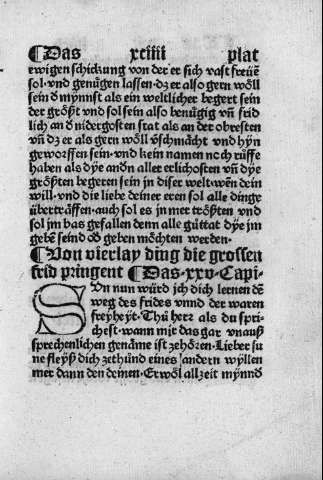 ¶Das xciiii plat
ewigen schickung von der er sich vast freüẽ
sol· vnd genügen lassen· dz er also gern wöll
sein d mynnst als ein weltlicher begert sein
der grőßt vnd sol sein also benűgig vñ frid
lich an d nidergosten stat als an der obresten
vñ dz er als gern wőll vſchmächt vnd hyn
geworffen sein· vnd kein namen noch rüffe
haben als dye andn aller erlichosten vñ dye
grőßten begeren sein in diser welt· wẽn dein
will· vnd die liebe deiner eren sol alle dinge
übertrãffen· auch sol es jn mer trőßten vnd
sol jm bas gefallen denn alle gűttat dye jm
gebẽ seind oď geben mőchten werden·
¶Von vierlay ding die grossen
frid pringent ¶Das·xxv·Capi·
SVn nun würd jch dich lernen dẽ
weg des frides vnnd der waren
freyheyt· Thů herr als du spri
chest· wann mir das gar vnauß
sprechenlichen genäme ist zehőren· Lieber su
ne fleyß dich zethůnd eines andern wyllen
mer dann den deinen· Erwől allzeit mynnd